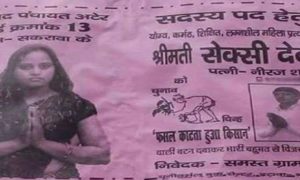 पद पंचायत अटेर
ई क्रमांक 13
- सकराया के
सदस्य पद हे
योग्य, कर्मठ, शिक्षित, लगनशील महिला प्रत्या
श्रीमती सेक्सी दे
पत्नी- नीरज श
को
चुनाव
चिन्ह
"फसल काटता हुआ किसान"
वाली बटन दबाकर भारी बहुमत से विज
निवेदक - समस्त ग्राम